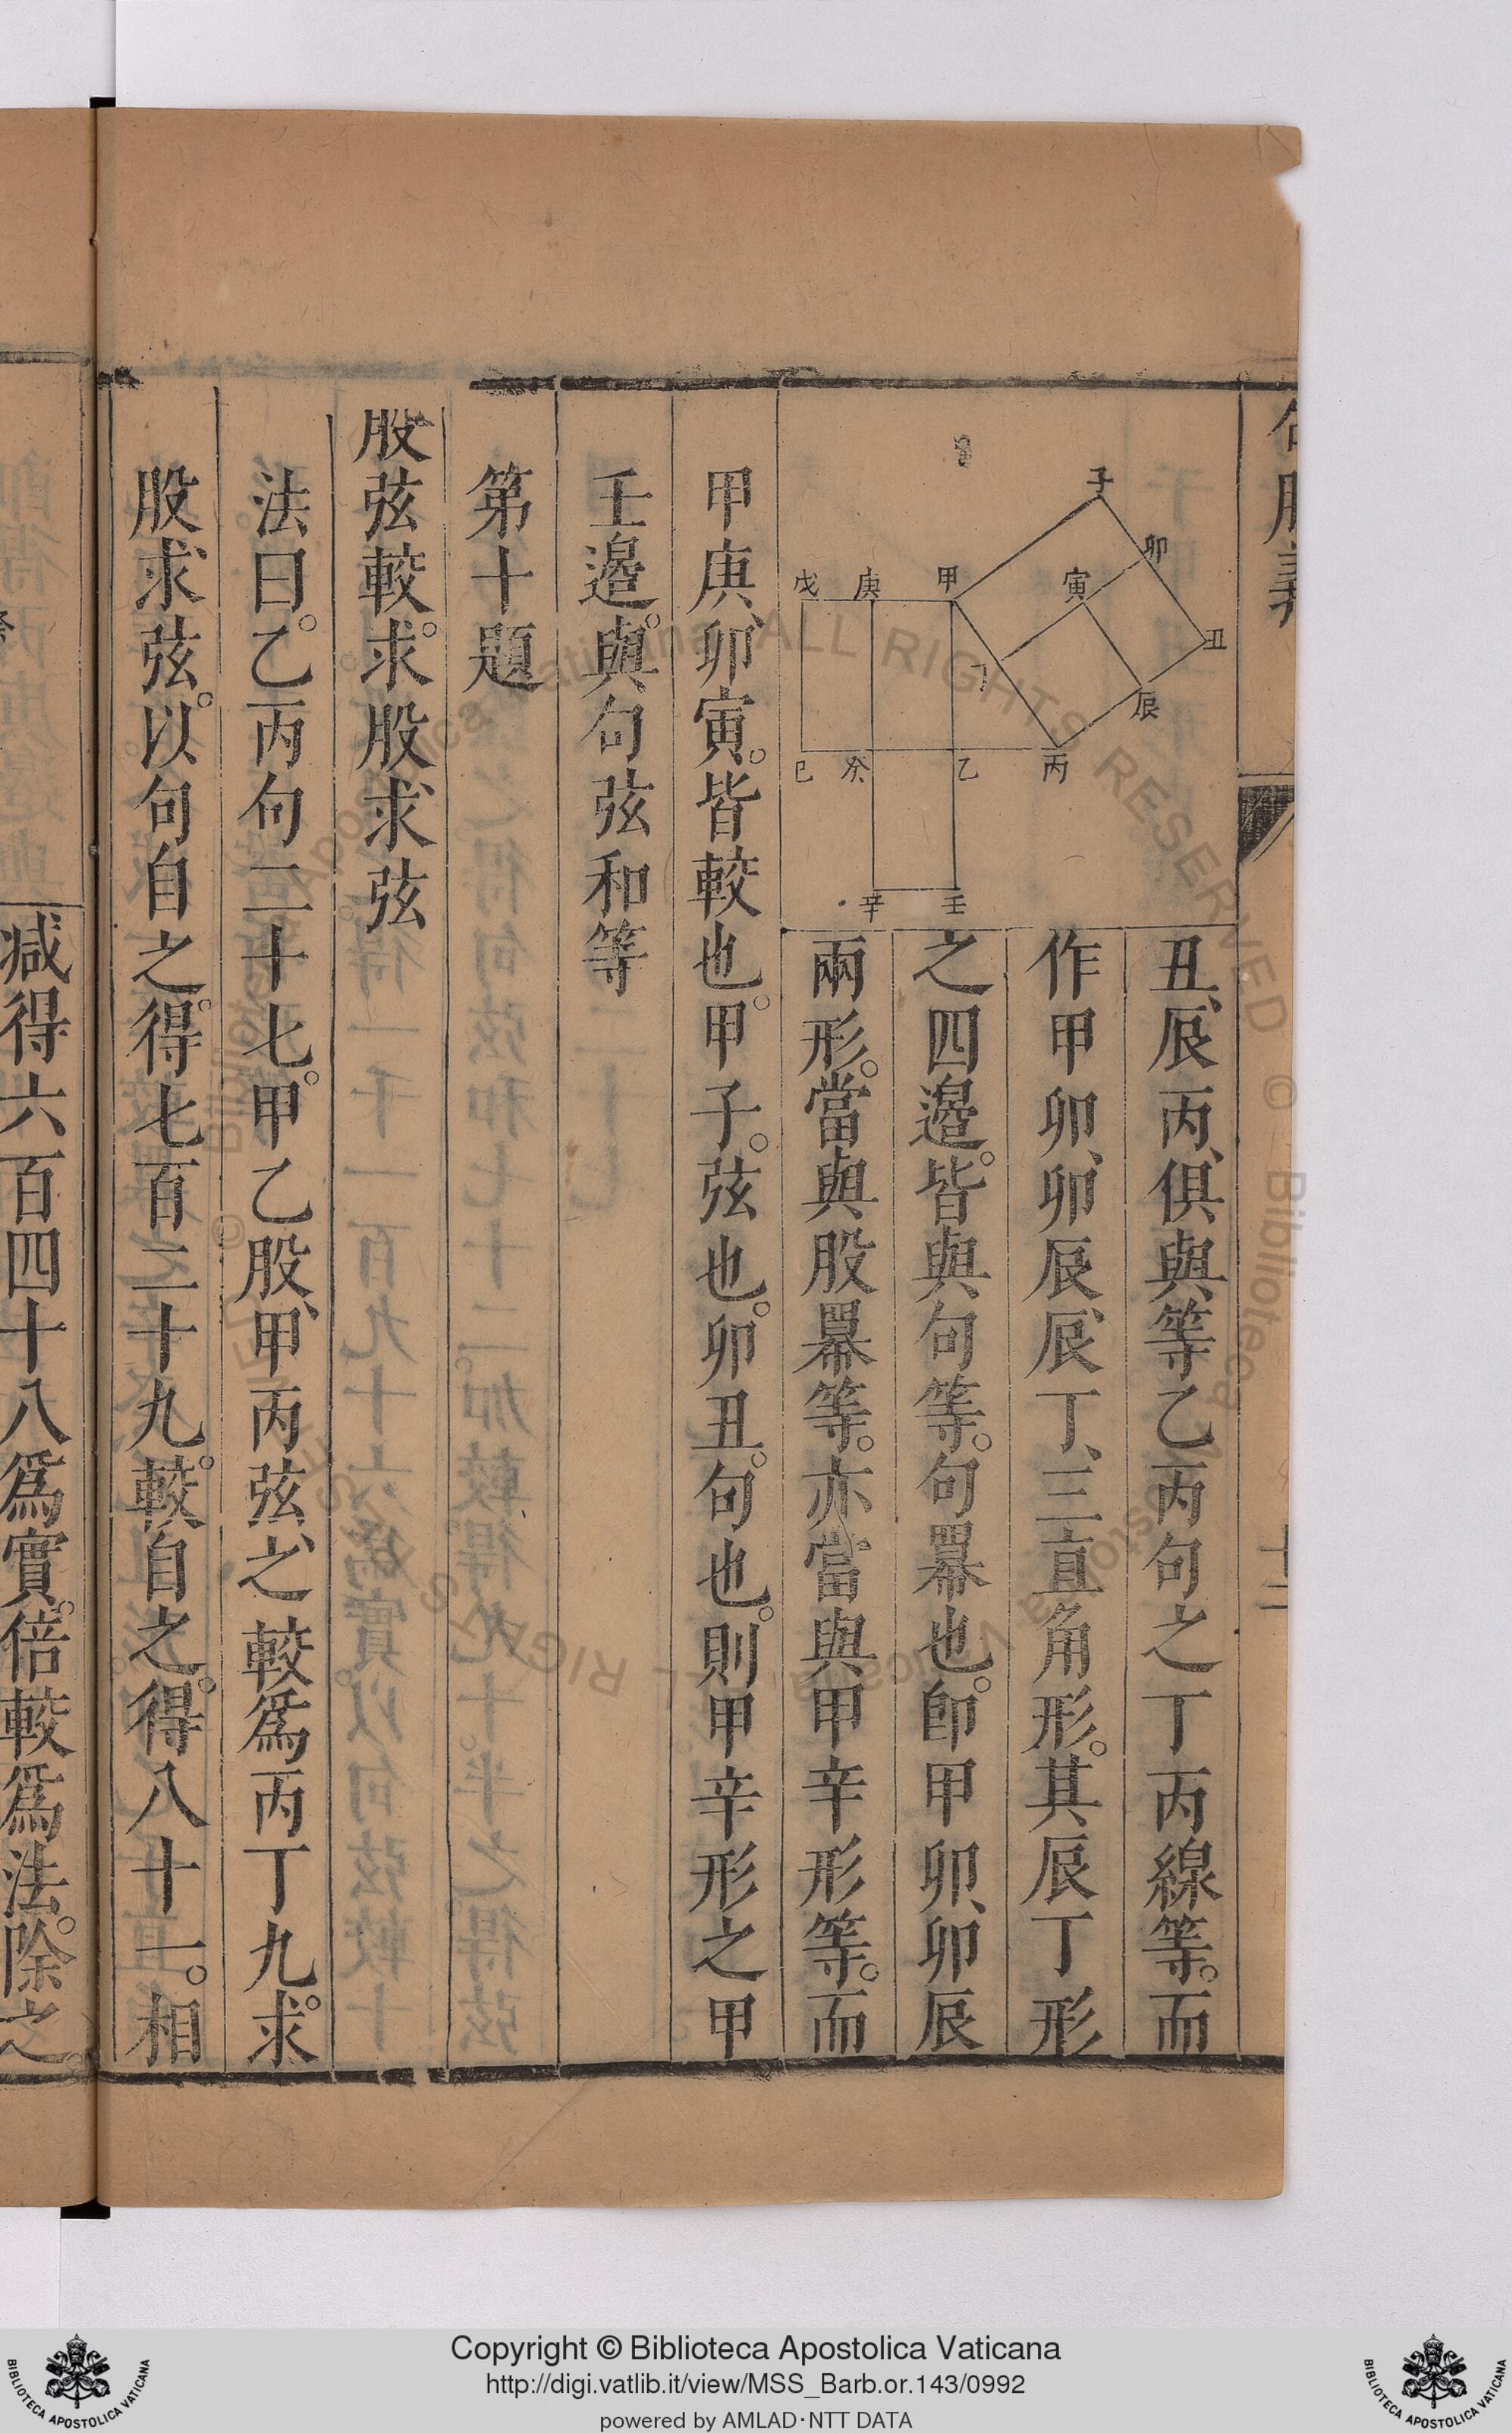 句股義
十二
子
卯
寅
丑
辰
甲
庚
戊
丁
丙
乙
癸
己
辛
壬
丑、辰丙、俱與等乙丙句之丁丙線等。而
作甲卯、卯辰、辰丁、三直角形。其辰丁形
之四邉。皆與句等。句羃也。卽甲卯、卯辰
兩形。當與股羃等。亦當與甲辛形等。而
甲庚、卯寅。皆較也。甲子。弦也。卯丑。句也。則甲辛形之甲
壬邉。與句弦和等
第十題
股弦較。求股求弦
法曰。乙丙句二十七。甲乙股、甲丙弦、之較爲丙丁九。求
股求弦。以句自之。得七百二十九。較自之。得八十一。相
減得六百四十八爲實。倍較爲法。除之。
Copyright © Biblioteca Apostolica Vaticana
http://digi.vatlib.it/view/MSS_Barb.or.143/0992
powered by AMLAD·NTT DATA
BIBLIOTECA APOSTOLICA VATICANA
BIBLIOTECA APOSTOLICA VATICANA